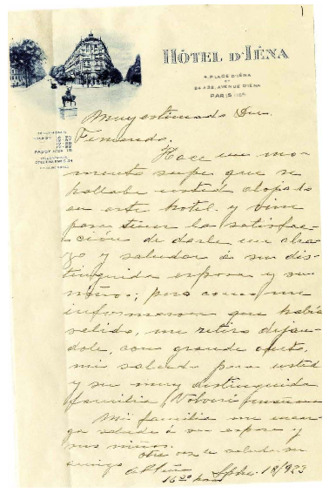 HÔTEL D'IÉNA
PARIS
Muy estimado Dn.
Fernando.
Hace un mo-
mento supe que se
hallaba usted alojado
en este hotel y vine
para tener la satisfac-
ción de darle un abra-
zo y saludar a su dis-
tinguida esposa y sus
niños; pero como me
informaron que había
salido, me retiro deján-
dole, con grande afecto,
mi saludo para usted
y su muy distinguida
familia. Volveré
Mi familia me encar-
ga salude a su esposa y
sus niños.
Otra vez le saluda su
amigo
Spbre. 18/923